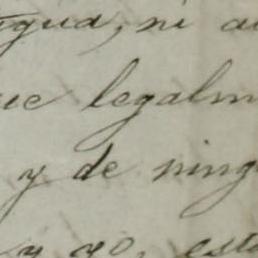 igua, ni a
ue legalm
y de ning
y yo, est